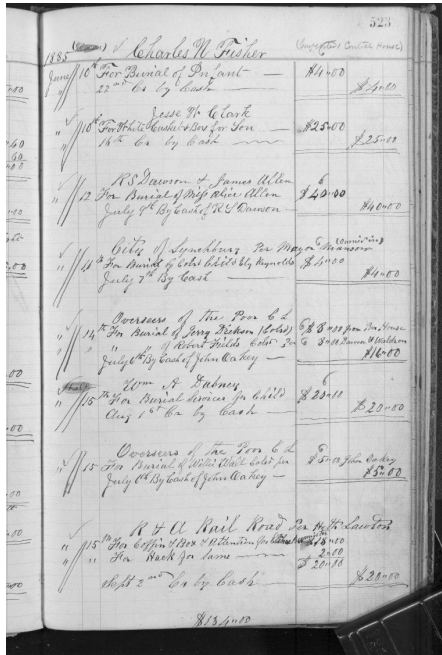 523
1885 Charles N Fisher
June 10th For Burial of Infant — $4.00
22nd Cr by Cash — $4.00
Jesse N Clark
" 10th For White Casket & Box for Son — $25.00
16th Cr by Cash — $25.00
R S Dawson & James Allen
" 12 For Burial of Miss Alice Allen $40.00
July 9th By Cash of R S Dawson — $40.00
City of Lynchburg Per Mayor Manson
" 11th For Burial of Cold Child Ely Reynolds $4.00
July 7th By Cash — $4.00
Overseers of the Poor C L
" 14th For Burial of Jerry Dickson (Cold) $8.00 from Poor House
" " " of Robert Fields Cold Per 8.00
July 6th By Cash of John Oakey — $16.00
Wm A Dabney
" 15th For Burial Services for Child $20.00
Aug 1st Cr by Cash — $20.00
Overseers of the Poor C L
" 15 For Burial of Cold per $5.00 John Oakey
July 6th By Cash of John Oakey — $5.00
R & A Rail Road Per Lawson
" 15th For Coffin & Box & Attention for $18.00
" " For Hack for same — 2.00
$20.00
Sept 2nd Cr by Cash — $20.00
$134.00